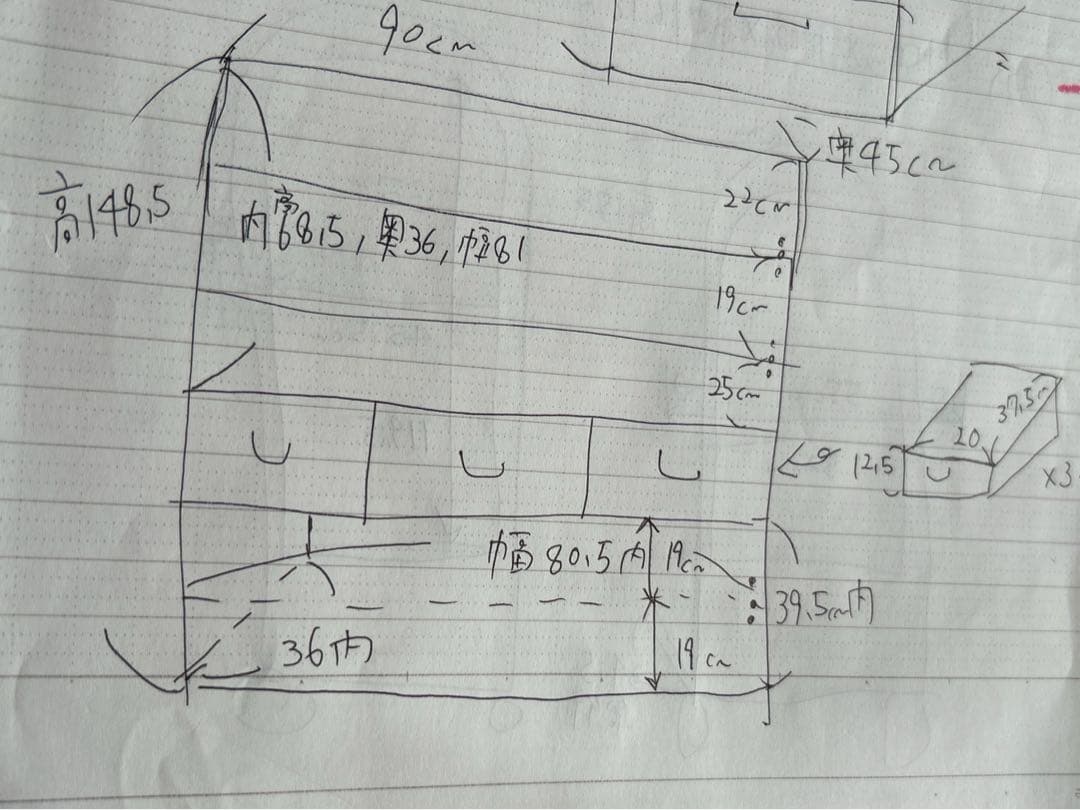 90cm
奥45cm
高148,5
22cm
内高68,5,奥36,幅81
19cm
25cm
37,5cm
20
12,5
x3
幅80,5内
19cm
39,5cm内
36内
19cm